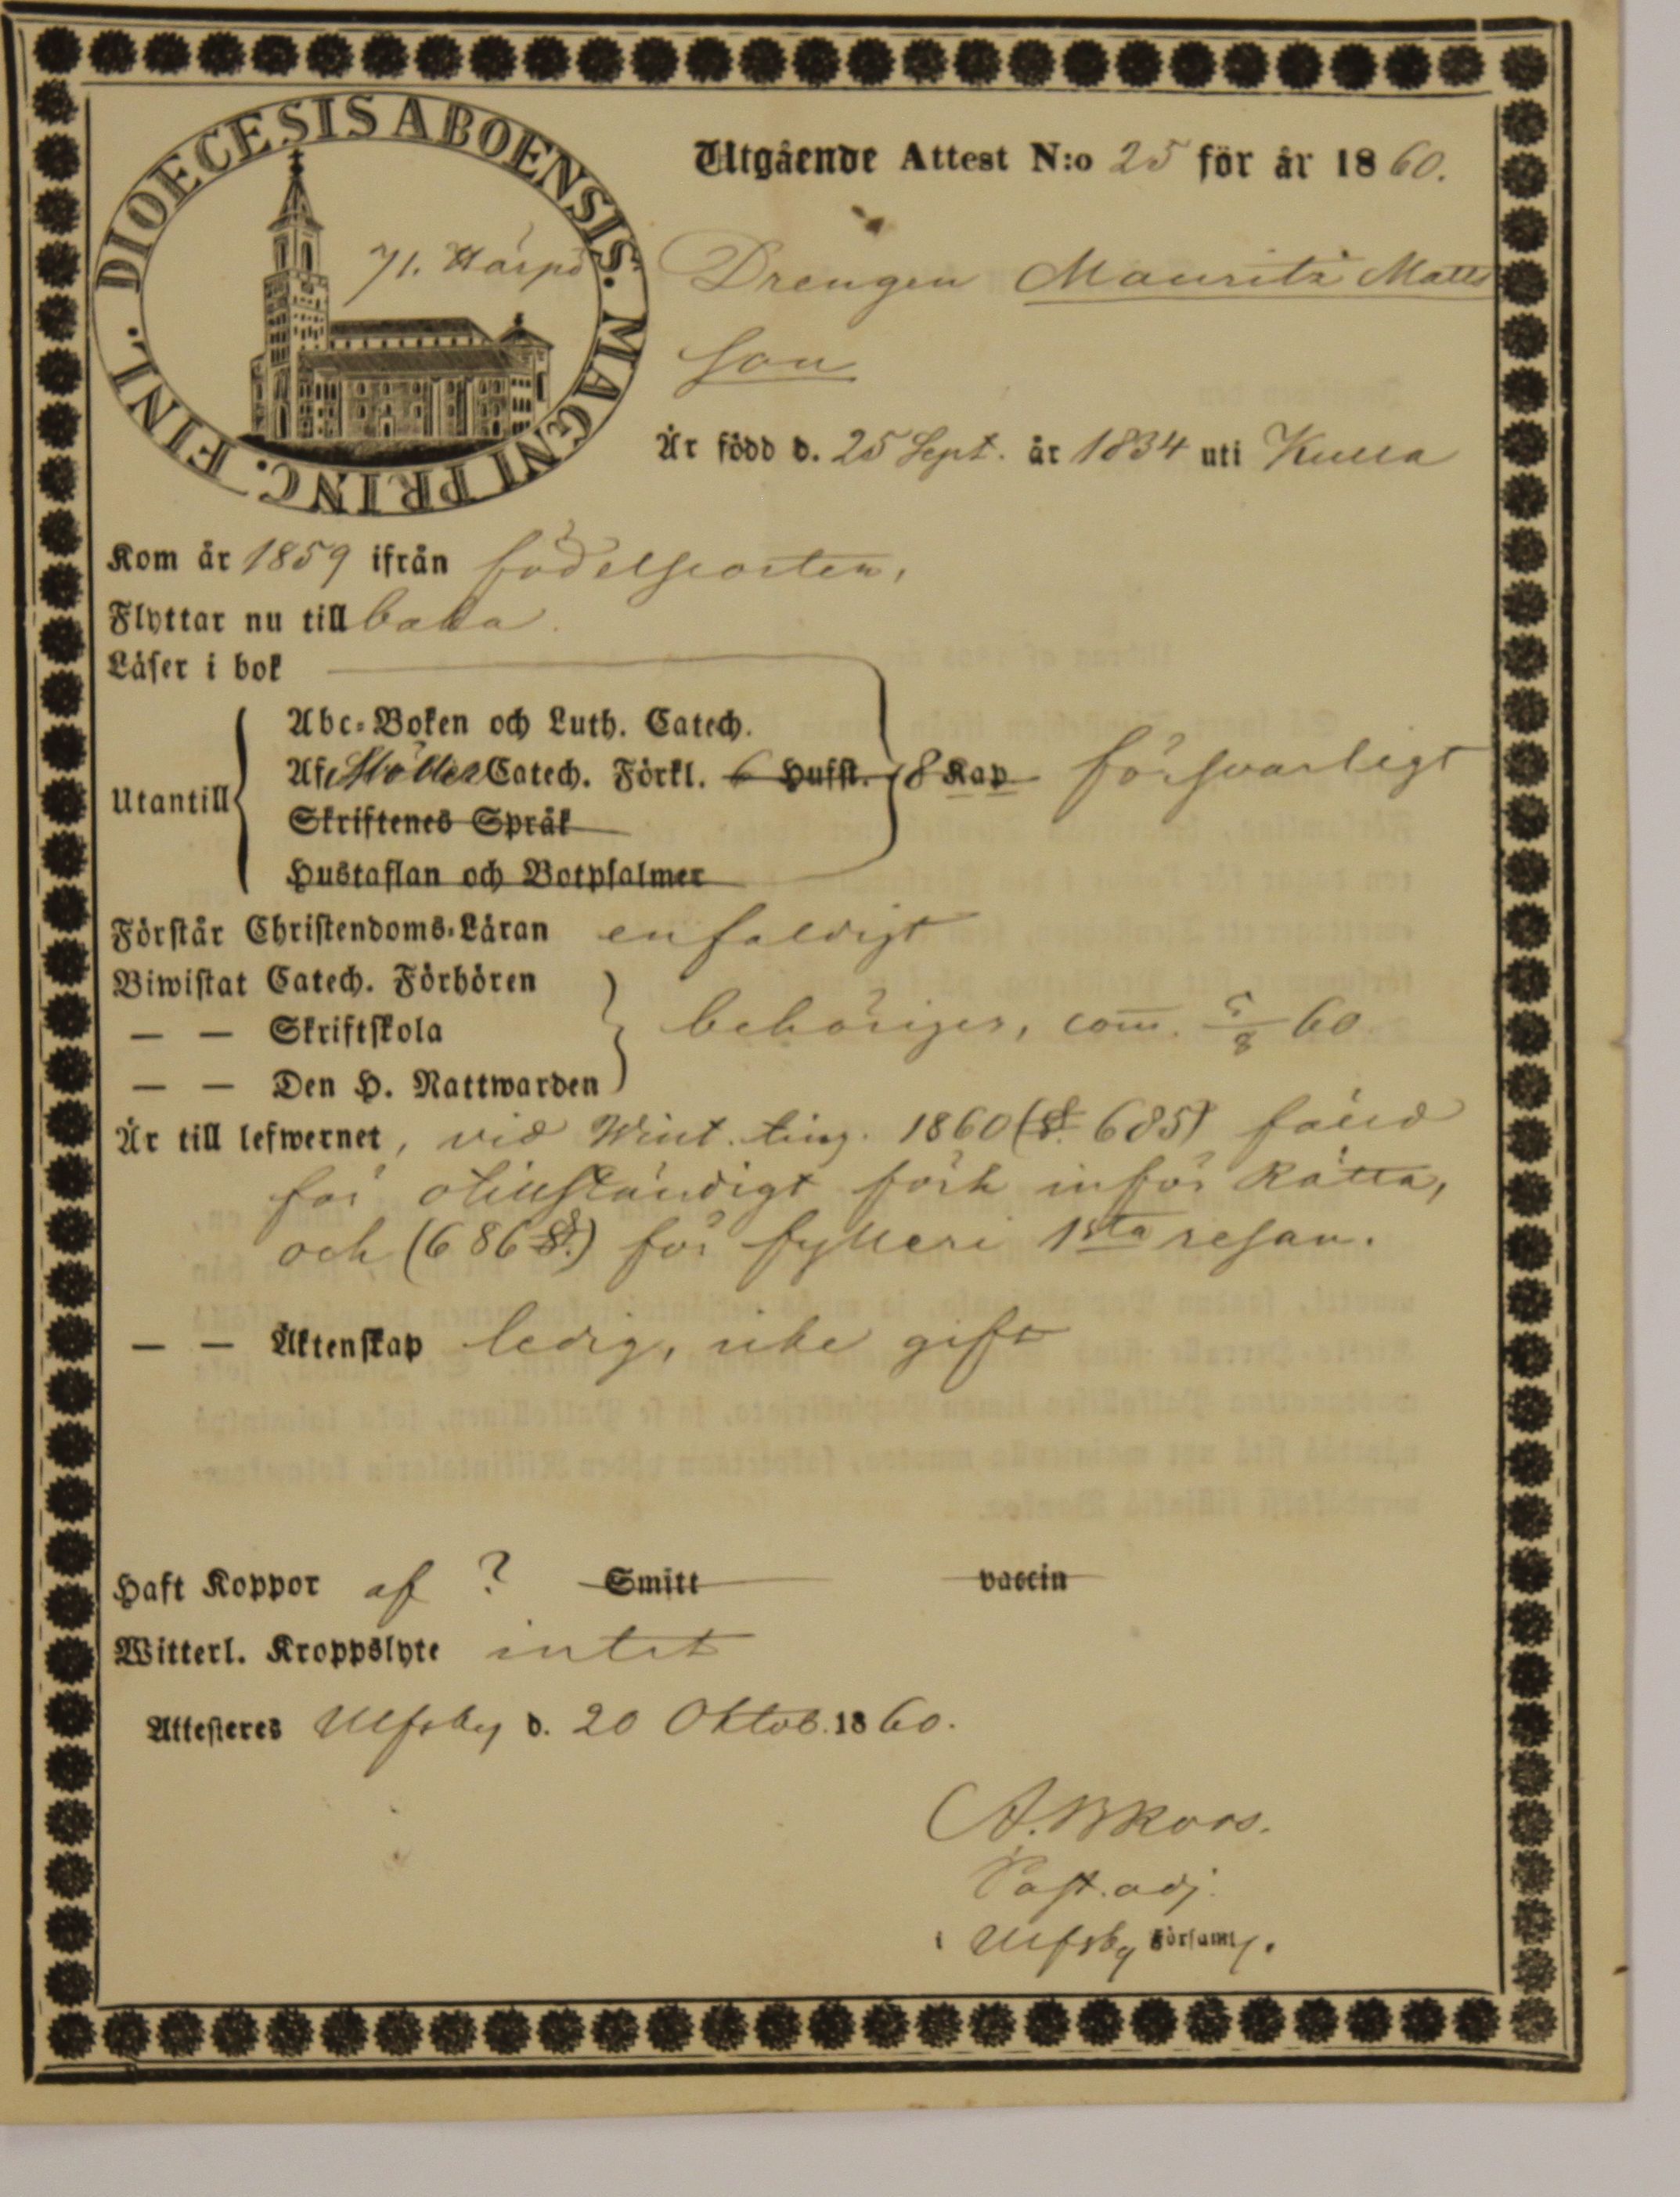 DIOECESIS ABOENSIS. MAGNI PRINC. FINL.
71.
Utgående Attest N:o 25 för år 1860.
Drengen Mauritz Matts
son
Är född d. 25 Sept. år 1834 uti Kulla
Kom år 1859 ifrån födelseorten,
Flyttar nu till baka.
Läser i bok
Abc-Boken och Luth. Catech.
Af Catech. Förkl. 6 Hufst. 8 Kap försvarligt
Utantill
Skriftenes Språk
Hustaflan och Botpsalmer
Förstår Christendoms-Läran enfaldigt
Biwistat Catech. Förhören
— — Skriftskola behörigen, com. 5/8 60
— — Den H. Nattwarden
Är till lefwernet, vid Wint. ting. 1860 (§. 685) fälld
för otillständigt förh inför Rätta,
och (686 §.) för fylleri 1sta resan.
— — Äktenskap ledig, icke gift
Haft Koppor af ? Smitt vaccin
Witterl. Kroppslyte intet
Attesteres Ulfsby d. 20 Oktob. 1860.
Past. adj.
i Ulfsby Församl.